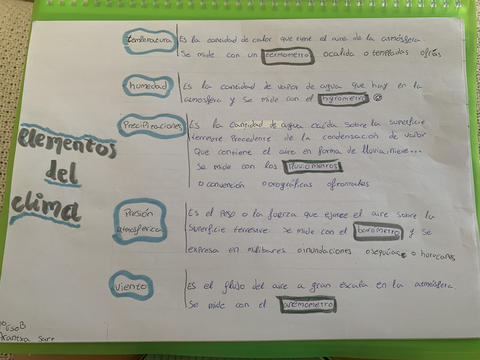 elementos
del
clima
temperatura
Es la cantidad de calor que tiene el aire de la atmósfera
Se mide con un termometro o calida o templadas o frias
humedad
Es la cantidad de vapor de agua que hay en la
atmosfera y se mide con el hyrometro
Precipitaciones
Es la cantidad de agua caida sobre la superficie
terrestre Procedente de la condensación de vapor
Que contiene el aire en forma de lluvia, nieve...
Se mide con los Pluviometros
o convención o orográficas o frontales
Presión
atmosferica
Es el Peso o la fuerza que ejerce el aire sobre la
superficie terrestre. Se mide con el barometro y se
expresa en milibares o inundaciones o sequias o huracanes
viento
Es el flujo del aire a gran escala en la atmósfera.
Se mide con el anemometro
ESO B
Arantxa Sarr